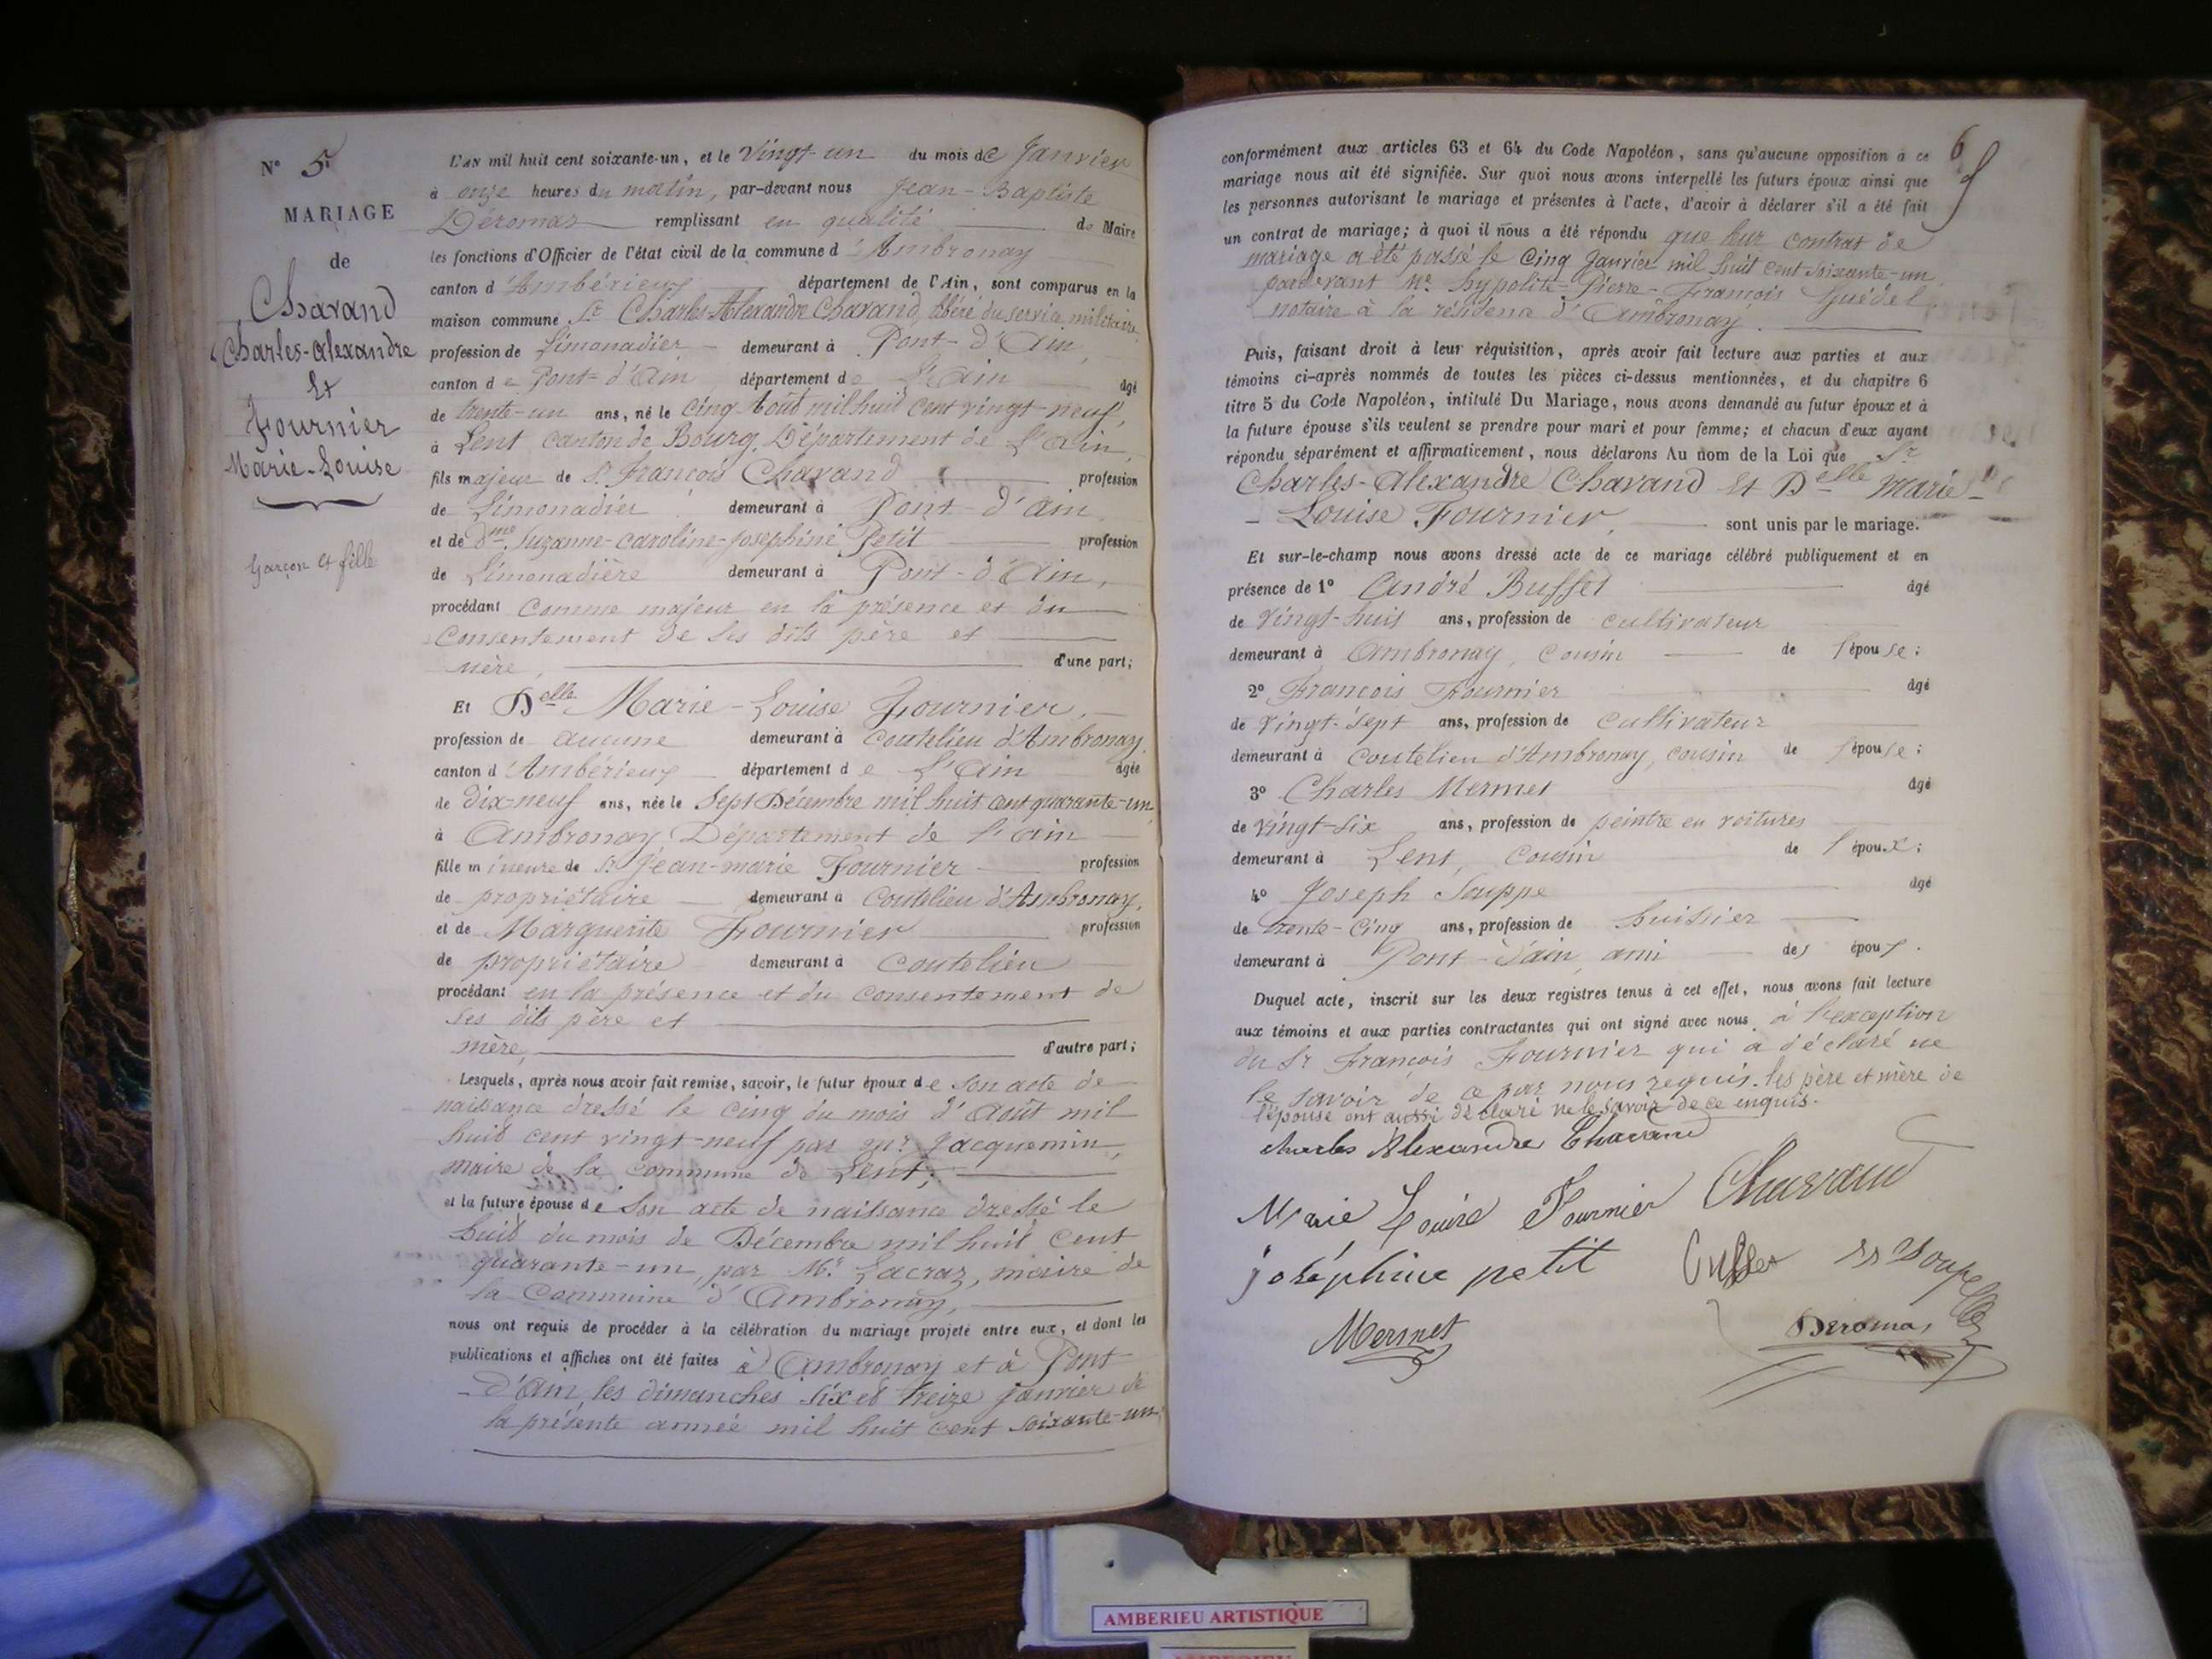 N° 5
MARIAGE
de
Chavand
Charles-Alexandre
Et
Fournier
Marie-Louise
Garçon et fille
L'AN mil huit cent soixante-un, et le Vingt-un du mois de Janvier
à onze heures du matin, par-devant nous Jean-Baptiste
Déromas remplissant en qualité de Maire
les fonctions d'Officier de l'état civil de la commune d'Ambronay
canton d'Ambérieux département de l'Ain, sont comparus en la
maison commune Sr Charles-Alexandre Chavand, libéré du service militaire,
profession de Limonadier demeurant à Pont-d'Ain,
canton de Pont-d'Ain département de L'Ain âgé
de trente-un ans, né le cinq Août mil huit cent vingt-neuf,
à Lent canton de Bourg, Département de L'Ain,
fils majeur de Sr François Chavand profession
de Limonadier demeurant à Pont-d'Ain
et de Dme Suzanne-caroline-josephine Petit profession
de Limonadière demeurant à Pont-d'Ain,
procédant comme majeur en la présence et du
consentement de ses dits père et
mère, d'une part;
Et Delle Marie-Louise Fournier,
profession de aucune demeurant à Coutelieu d'Ambronay,
canton d'Ambérieux département de L'Ain âgée
de dix-neuf ans, née le Sept Décembre mil huit cent quarante-un
à Ambronay Département de l'Ain
fille mineure de Sr Jean-marie Fournier profession
de propriétaire demeurant à Coutelieu d'Ambronay,
et de Marguerite Fournier profession
de propriétaire demeurant à Coutelieu
procédant en la présence et du consentement de
ses dits père et
mère, d'autre part;
Lesquels, après nous avoir fait remise, savoir, le futur époux de son acte de
naissance dressé le cinq du mois d'Août mil
huit cent vingt-neuf par Mr Jacquemin,
maire de la commune de Lent;
et la future épouse de son acte de naissance dressé le
huit du mois de Décembre mil huit cent
quarante-un, par Mr Lacraz, maire de
la Commune d'Ambronay,
nous ont requis de procéder à la célébration du mariage projeté entre eux, et dont les
publications et affiches ont été faites à Ambronay et à Pont
-d'Ain, les dimanches six et treize janvier de
la présente année mil huit cent soixante-un
6
conformément aux articles 63 et 64 du Code Napoléon, sans qu'aucune opposition à ce
mariage nous ait été signifiée. Sur quoi nous avons interpellé les futurs époux ainsi que
les personnes autorisant le mariage et présentes à l'acte, d'avoir à déclarer s'il a été fait
un contrat de mariage; à quoi il nous a été répondu que leur contrat de
mariage a été passé le cinq Janvier mil huit cent soixante-un
pardevant Me hypolite-Pierre-François Guédel
notaire à la résidence d'Ambronay.
Puis, faisant droit à leur réquisition, après avoir fait lecture aux parties et aux
témoins ci-après nommés de toutes les pièces ci-dessus mentionnées, et du chapitre 6
titre 5 du Code Napoléon, intitulé Du Mariage, nous avons demandé au futur époux et à
la future épouse s'ils veulent se prendre pour mari et pour femme; et chacun d'eux ayant
répondu séparément et affirmativement, nous déclarons Au nom de la Loi que Sr
Charles-Alexandre Chavand Et Delle Marie-
-Louise Fournier, sont unis par le mariage.
Et sur-le-champ nous avons dressé acte de ce mariage célébré publiquement et en
présence de 1° André Buffet âgé
de Vingt-huit ans, profession de cultivateur
demeurant à Ambronay, cousin de l'épouse;
2° François Fournier âgé
de Vingt-sept ans, profession de Cultivateur
demeurant à Coutelieu d'Ambronay, cousin de l'épouse;
3° Charles Mermet âgé
de vingt-six ans, profession de peintre en voitures
demeurant à Lent, cousin de l'époux;
4° Joseph Souppe âgé
de trente-cinq ans, profession de huissier
demeurant à Pont-d'ain, ami des époux.
Duquel acte, inscrit sur les deux registres tenus à cet effet, nous avons fait lecture
aux témoins et aux parties contractantes qui ont signé avec nous à l'exception
du Sr François Fournier qui a déclaré ne
le savoir de ce par nous requis. les père et mère de
l'épouse ont aussi déclaré ne le savoir de ce enquis.
Charles Alexandre Chavand
Marie Louise Fournier Chavand
joséphine petit Buffet Souppe
Mermet Deromas
AMBERIEU ARTISTIQUE
AMBERIEU